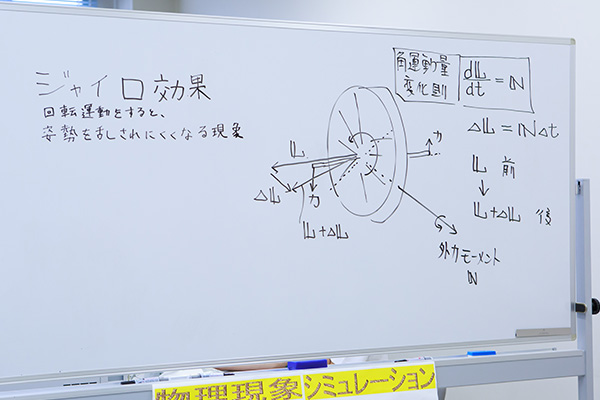 ジャイロ効果
回転運動をすると、
姿勢を乱しされにくくなる現象
角運動量
変化則
d𝕃/dt = ℕ
Δ𝕃 = ℕΔt
𝕃 前
↓
𝕃+Δ𝕃 後
𝕃
Δ𝕃
力
𝕃+Δ𝕃
力
外力モーメント
ℕ
物理現象シミュレーション